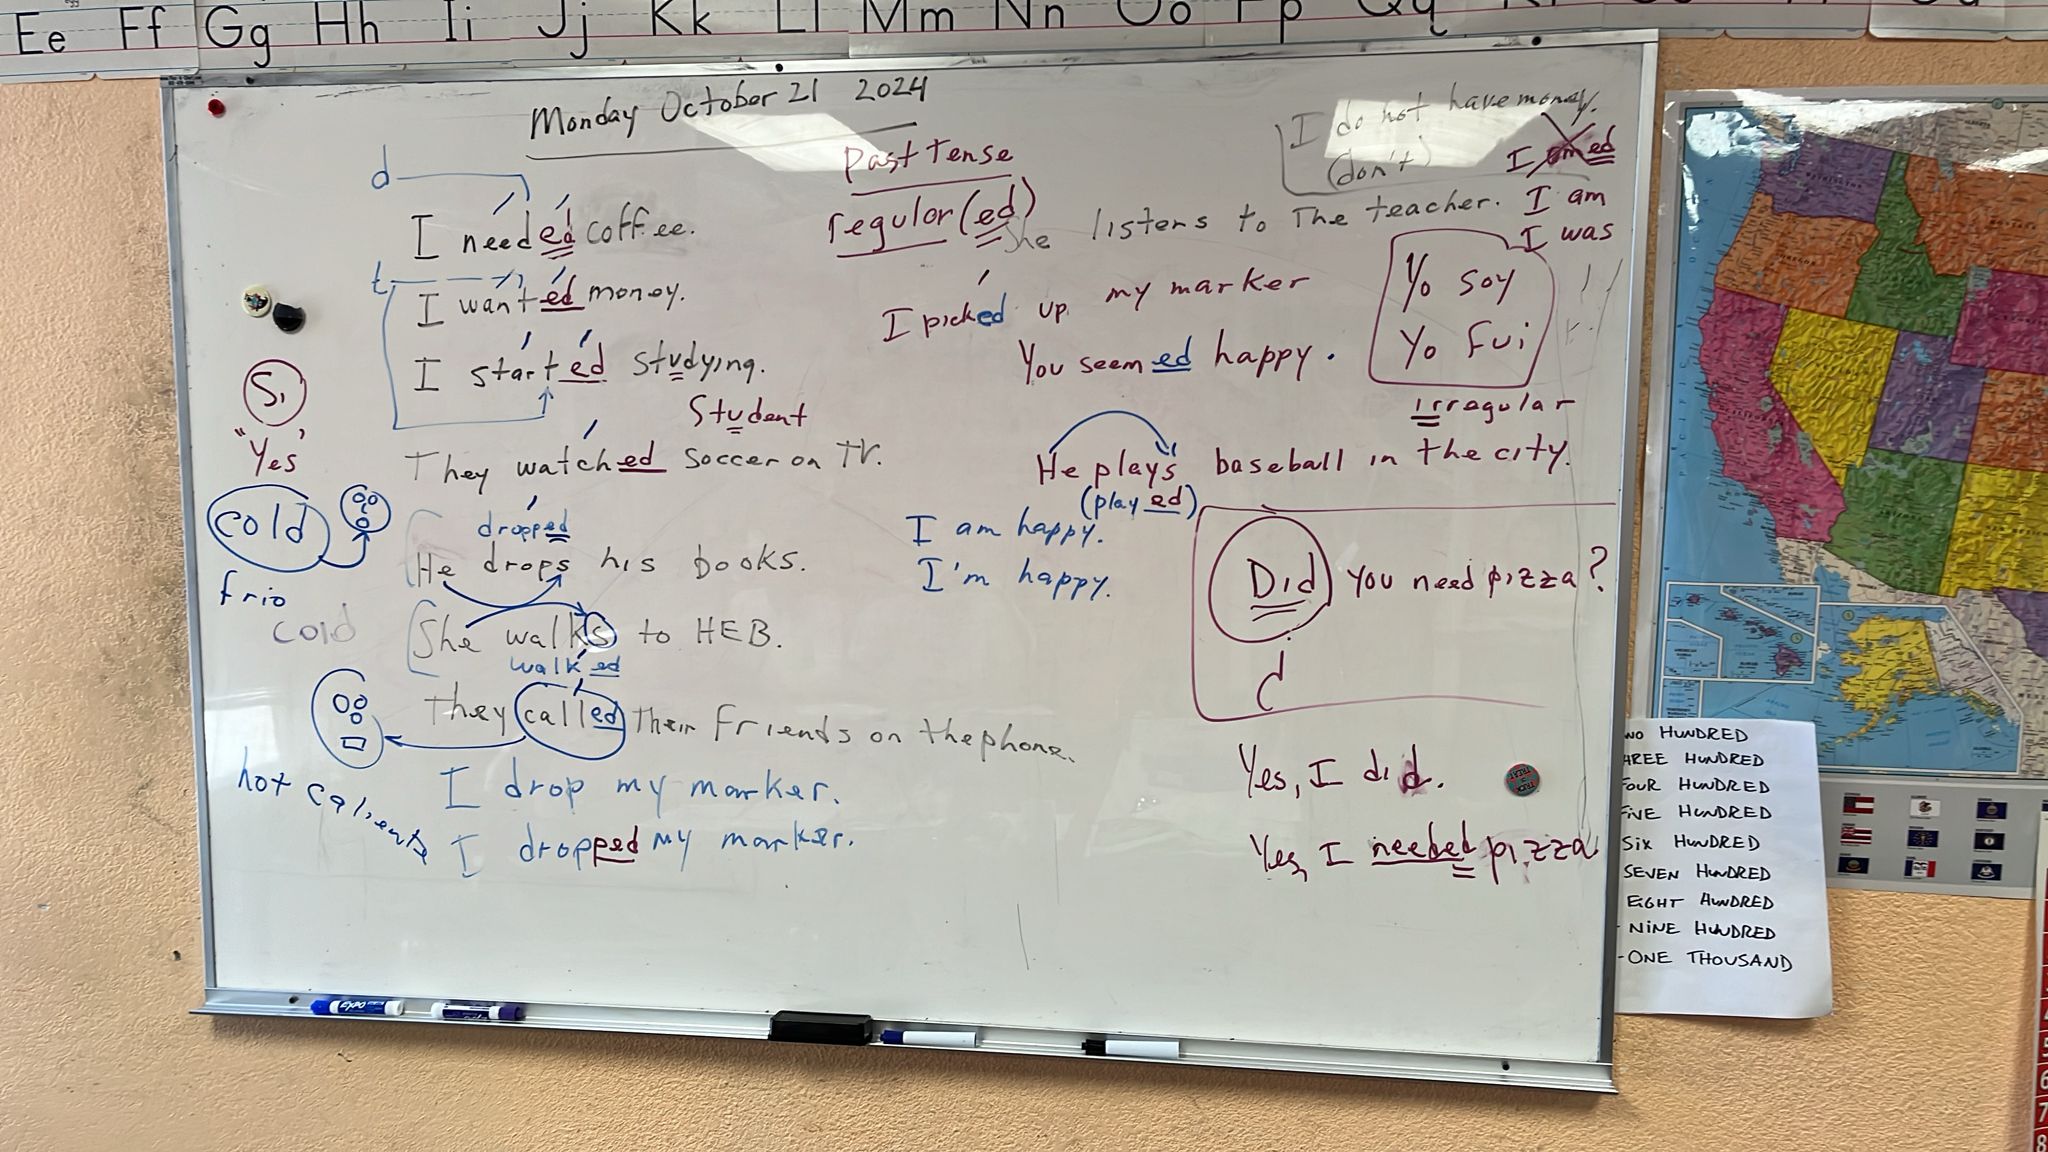 Ee Ff Gg Hh Ii Jj Kk Ll Mm Nn Oo Pp Qq
Monday October 21 2024
Past Tense
regular (ed)
I do not have money.
(don't)
I amed
I am
I was
d
I needed coffee.
She listens to The teacher.
t
I wanted money.
I picked up my marker
Yo soy
Yo fui
irregular
I started studying.
Student
You seemed happy.
Si
"Yes"
They watched soccer on TV.
He plays baseball in the city.
(played)
cold
frio
cold
dropped
He drops his books.
I am happy.
I'm happy.
Did you need pizza?
d
She walks to HEB.
walked
They called Their friends on the phone.
hot caliente
I drop my marker.
I dropped my marker.
Yes, I did.
Yes, I needed pizza
TRICK OR TREAT
HUNDRED
HUNDRED
FOUR HUNDRED
FIVE HUNDRED
SIX HUNDRED
SEVEN HUNDRED
EIGHT HUNDRED
- NINE HUNDRED
- ONE THOUSAND
EXPO
PACIFIC
OREGON
5
6
7
8